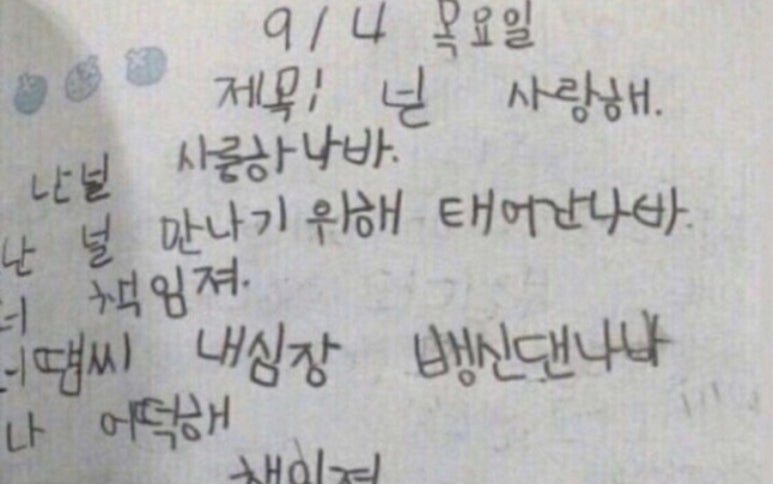 9/4 목요일
제목! 넌 사랑해.
난널 사릉하나바.
난 널 만나기 위해 태어난나바.
책임져.
땜씨 내심장 뱅신댄나바
나 어떡해
책임져